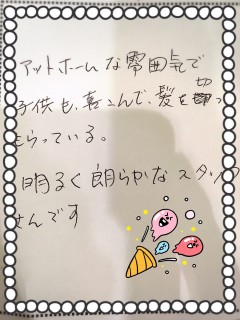 アットホームな雰囲気で
子供も、喜こんで、髪を切っ
もらっている。
明るく朗らかなスタッフ
さんです